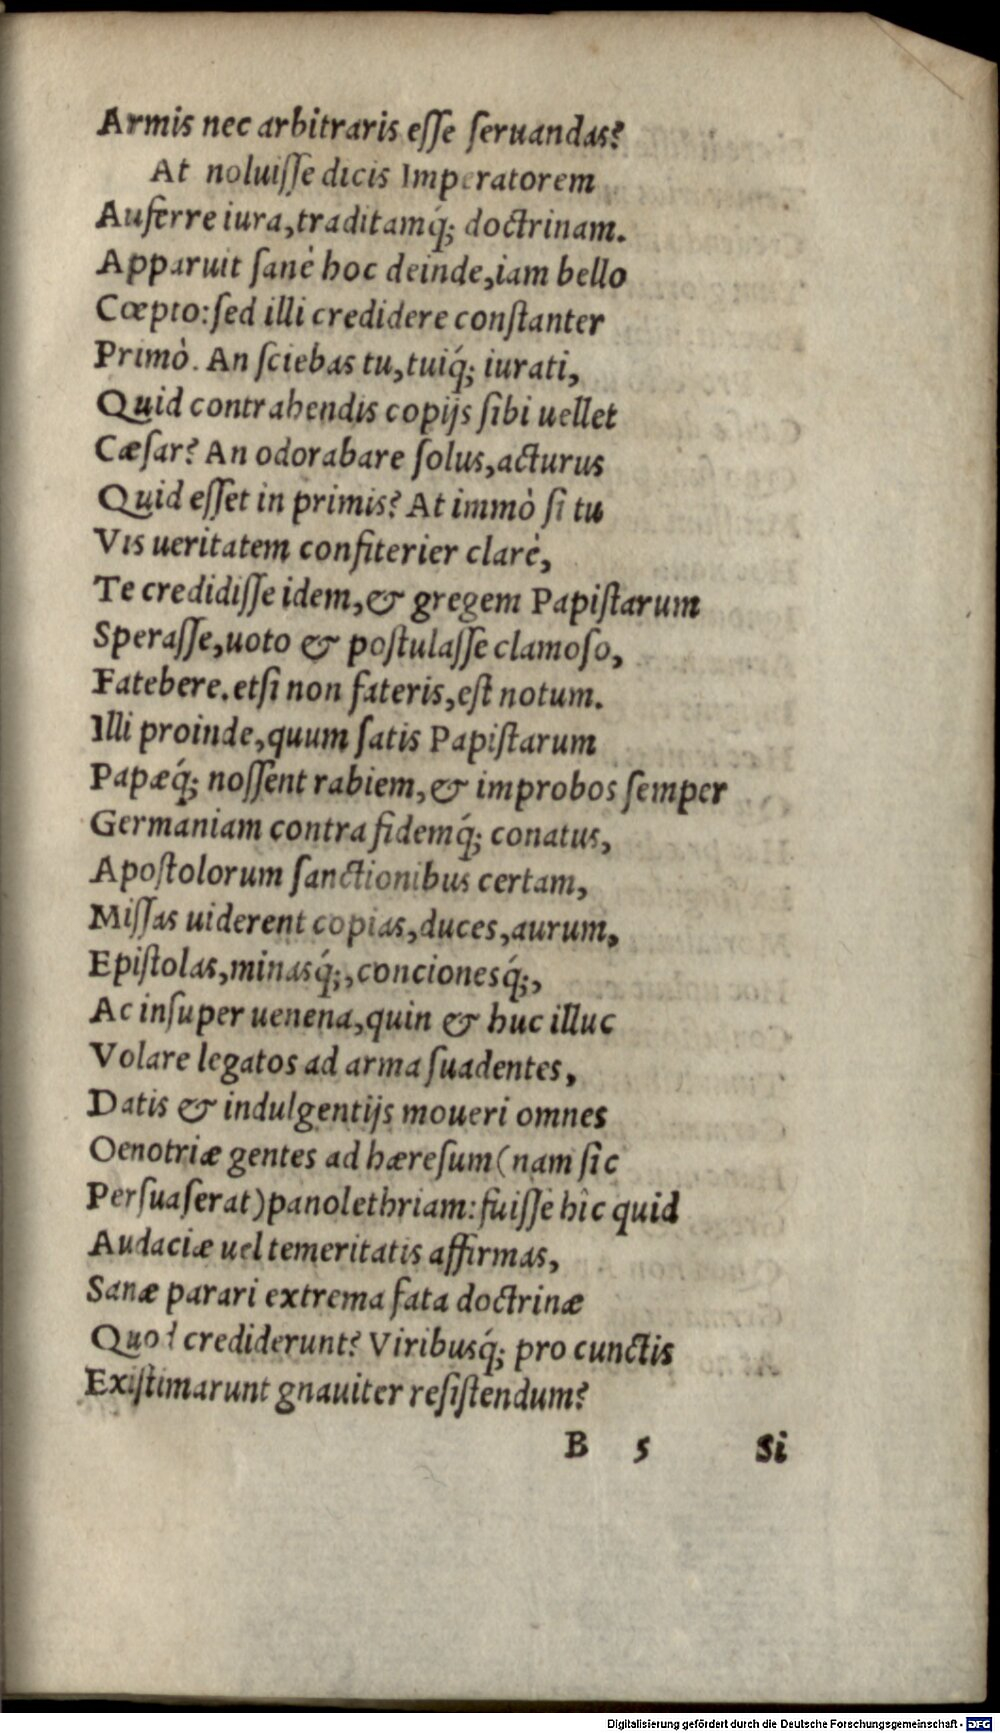 Armis nec arbitraris eſſe ſeruandas?
At noluiſſe dicis Imperatorem
Auferre iura, traditamq́; doctrinam.
Apparuit ſanè hoc deinde, iam bello
Cœpto: ſed illi credidere conſtanter
Primò. An ſciebas tu, tuiq́; iurati,
Quid contrahendis copijs ſibi uellet
Cæſar? An odorabare ſolus, acturus
Quid eſſet in primis? At immò ſi tu
Vis ueritatem confiterier clarè,
Te credidiſſe idem, & gregem Papiſtarum
Speraſſe, uoto & poſtulaſſe clamoſo,
Fatebere. etſi non fateris, eſt notum.
Illi proinde, quum ſatis Papiſtarum
Papæq́; noſſent rabiem, & improbos ſemper
Germaniam contra fidemq́; conatus,
Apoſtolorum ſanctionibus certam,
Miſſas uiderent copias, duces, aurum,
Epiſtolas, minasq́;, concionesq́;,
Ac inſuper uenena, quin & huc illuc
Volare legatos ad arma ſuadentes,
Datis & indulgentijs moueri omnes
Oenotriæ gentes ad hæreſum (nam ſic
Perſuaſerat) panolethriam: fuiſſe hîc quid
Audaciæ uel temeritatis affirmas,
Sanæ parari extrema fata doctrinæ
Quod crediderunt? Viribusq́; pro cunctis
Exiſtimarunt gnauiter reſiſtendum?
B 5 Si
Digitalisierung gefördert durch die Deutsche Forschungsgemeinschaft - DFG